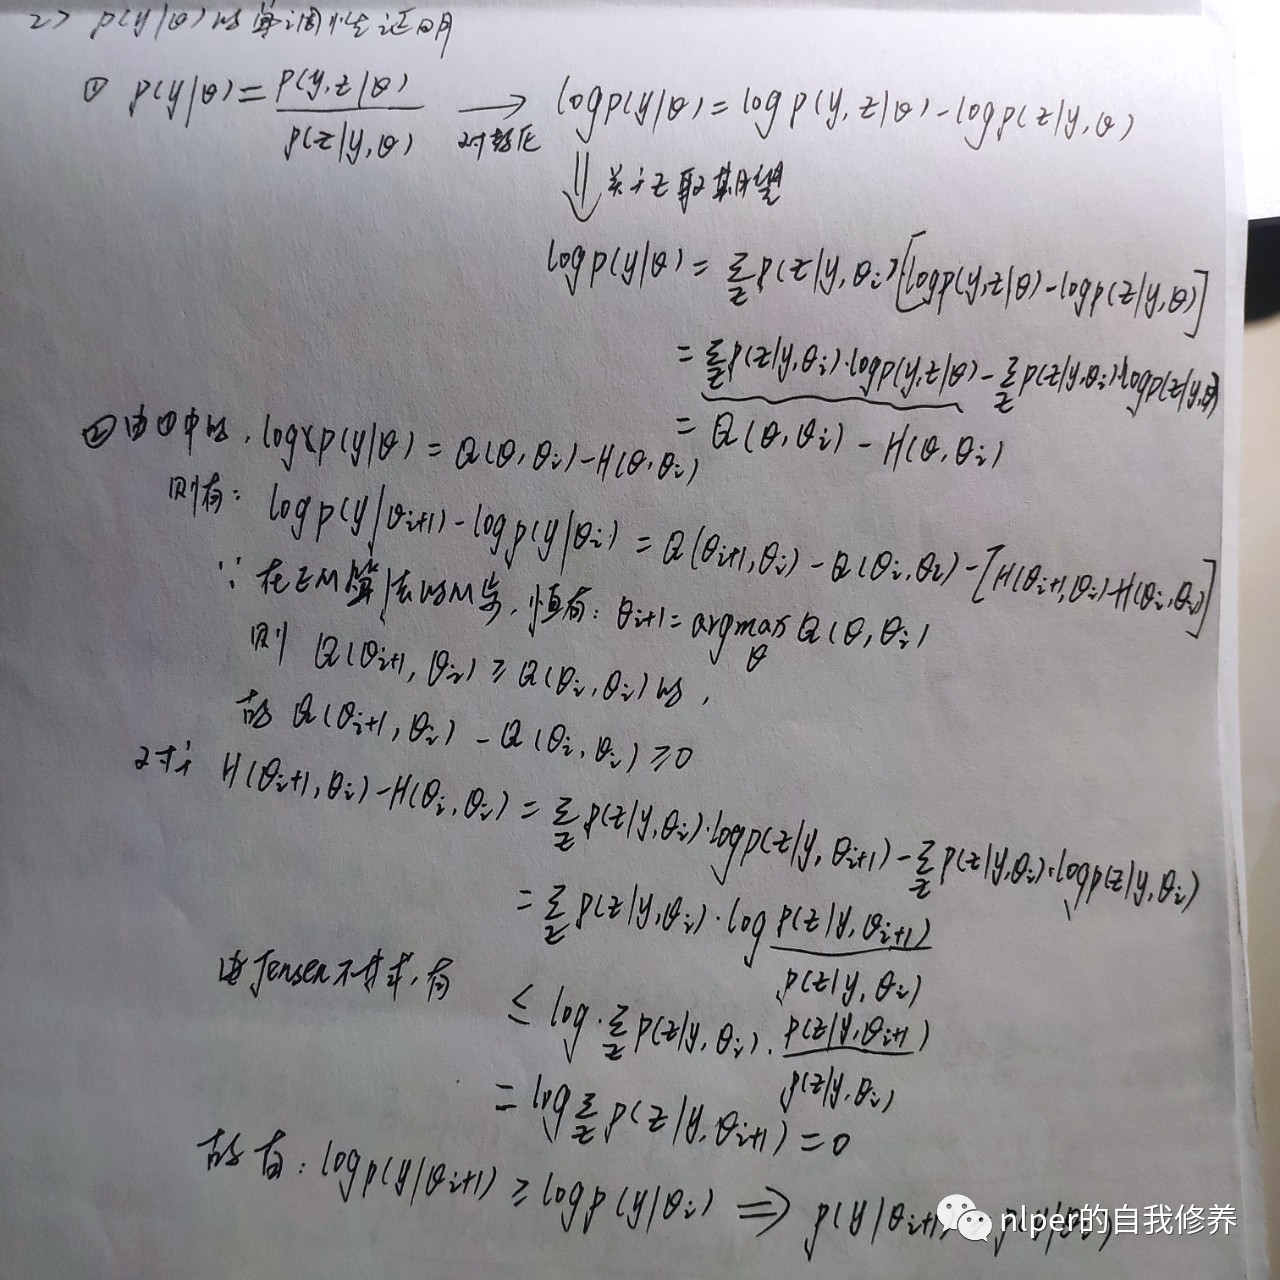 2> p(y|θ)的单调性证明
① p(y|θ) = p(y,z|θ) / p(z|y,θ) ⟶ 对数化 log p(y|θ) = log p(y,z|θ) - log p(z|y,θ)
⇓ 关于z取期望
log p(y|θ) = Σ_z p(z|y,θi)·[log p(y,z|θ) - log p(z|y,θ)]
= Σ_z p(z|y,θi)·log p(y,z|θ) - Σ_z p(z|y,θi)·log p(z|y,θ)
= Q(θ,θi) - H(θ,θi)
② 由①中的, log p(y|θ) = Q(θ,θi) - H(θ,θi)
则有: log p(y|θi+1) - log p(y|θi) = Q(θi+1,θi) - Q(θi,θi) - [H(θi+1,θi) - H(θi,θi)]
∵ 在EM算法的M步, 恒有: θi+1 = argmax_θ Q(θ,θi)
则 Q(θi+1,θi) ≥ Q(θi,θi)的,
故 Q(θi+1,θi) - Q(θi,θi) ≥ 0
对于 H(θi+1,θi) - H(θi,θi) = Σ_z p(z|y,θi)·log p(z|y,θi+1) - Σ_z p(z|y,θi)·log p(z|y,θi)
= Σ_z p(z|y,θi)·log p(z|y,θi+1) / p(z|y,θi)
由Jensen不等式, 有 ≤ log·Σ_z p(z|y,θi)·p(z|y,θi+1) / p(z|y,θi)
= log Σ_z p(z|y,θi+1) = 0
故有: log p(y|θi+1) ≥ log p(y|θi) ⇒ p(y|θi+1
nlper的自我修养